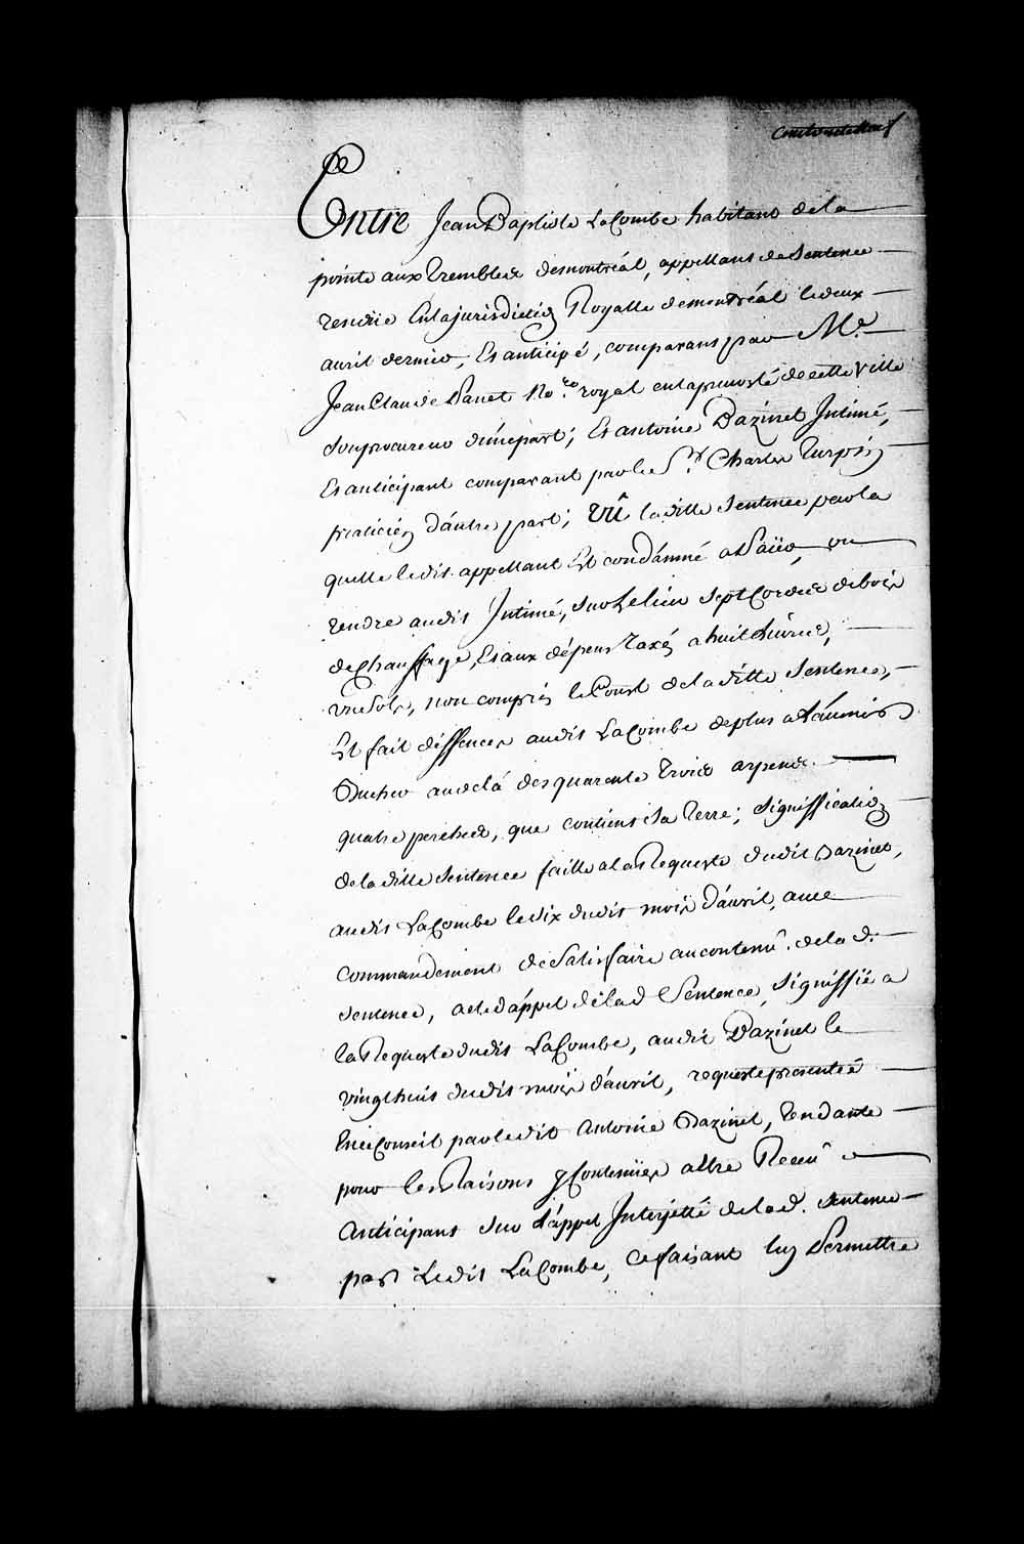 Entre Jean Baptiste LaCombe habitant dela
pointe aux Trembles demontréal, appellant de Sentence
rendüe Enlajurisdiction Royalle demontréal ledeux
avril dernier, Et anticipé, comparant par Me.
Jean Claude Panet No.re royal enlaprevosté decette Ville
Sonprocureur d'unepart; Et antoine Dazinet Intimé,
Et anticipant comparant parle Sr. Charles Turpin
praticien d'autre part; Vû laditte Sentence parla
quelle ledit appellant Est condámné a Païer, ou
rendre audit Intimé, Surlelieu Sept Cordes debois
de Chauffage, Et aux dépens Taxés ahuit Livres,
un Sols, non compris leCoust deladitte Sentence,
Et fait déffences audit LaCombe deplus a L'avenir
Bucher audelá des quarente Trois arpens
quatre perches, que contient Sa Terre; Signiffication
deladitte Sentence faitte alaRequeste dudit Dazinet,
audit LaCombe ledix dudit mois d'avril, avec
commandement deSatisfaire aucontenû. delad.
Sentence, acte d'appel delad Sentence, Signiffié a
laRequeste dudit LaCombe, audit Dazinet le
vingt huit dudit mois d'avril, requeste presentée
EnceConseil parledit Antoine Dazinet, Tendante
pour les Raisons y Contenües aEstre Receu
Anticipant Sur L'appel Interjetté delad. Sentence
par Ledit LaCombe, cefaisant luy Permettre